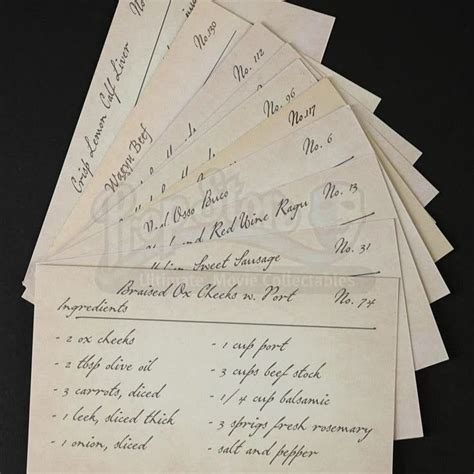 No. 130
No. 112
No. 96
No. 117
No. 6
No. 13
No. 31
Crisp Lemon Calf Liver
Wagyu Beef
Osso Buco
Red Wine Ragu
Sweet Sausage
Braised Ox Cheeks w. Port No. 74
Ingredients
- 2 ox cheeks
- 2 tbsp olive oil
- 3 carrots, diced
- 1 leek, sliced thick
- 1 onion, sliced
- 1 cup port
- 3 cups beef stock
- 1/4 cup balsamic
- 3 sprigs fresh rosemary
- salt and pepper
Prop Store
Ultimate Movie Collectables